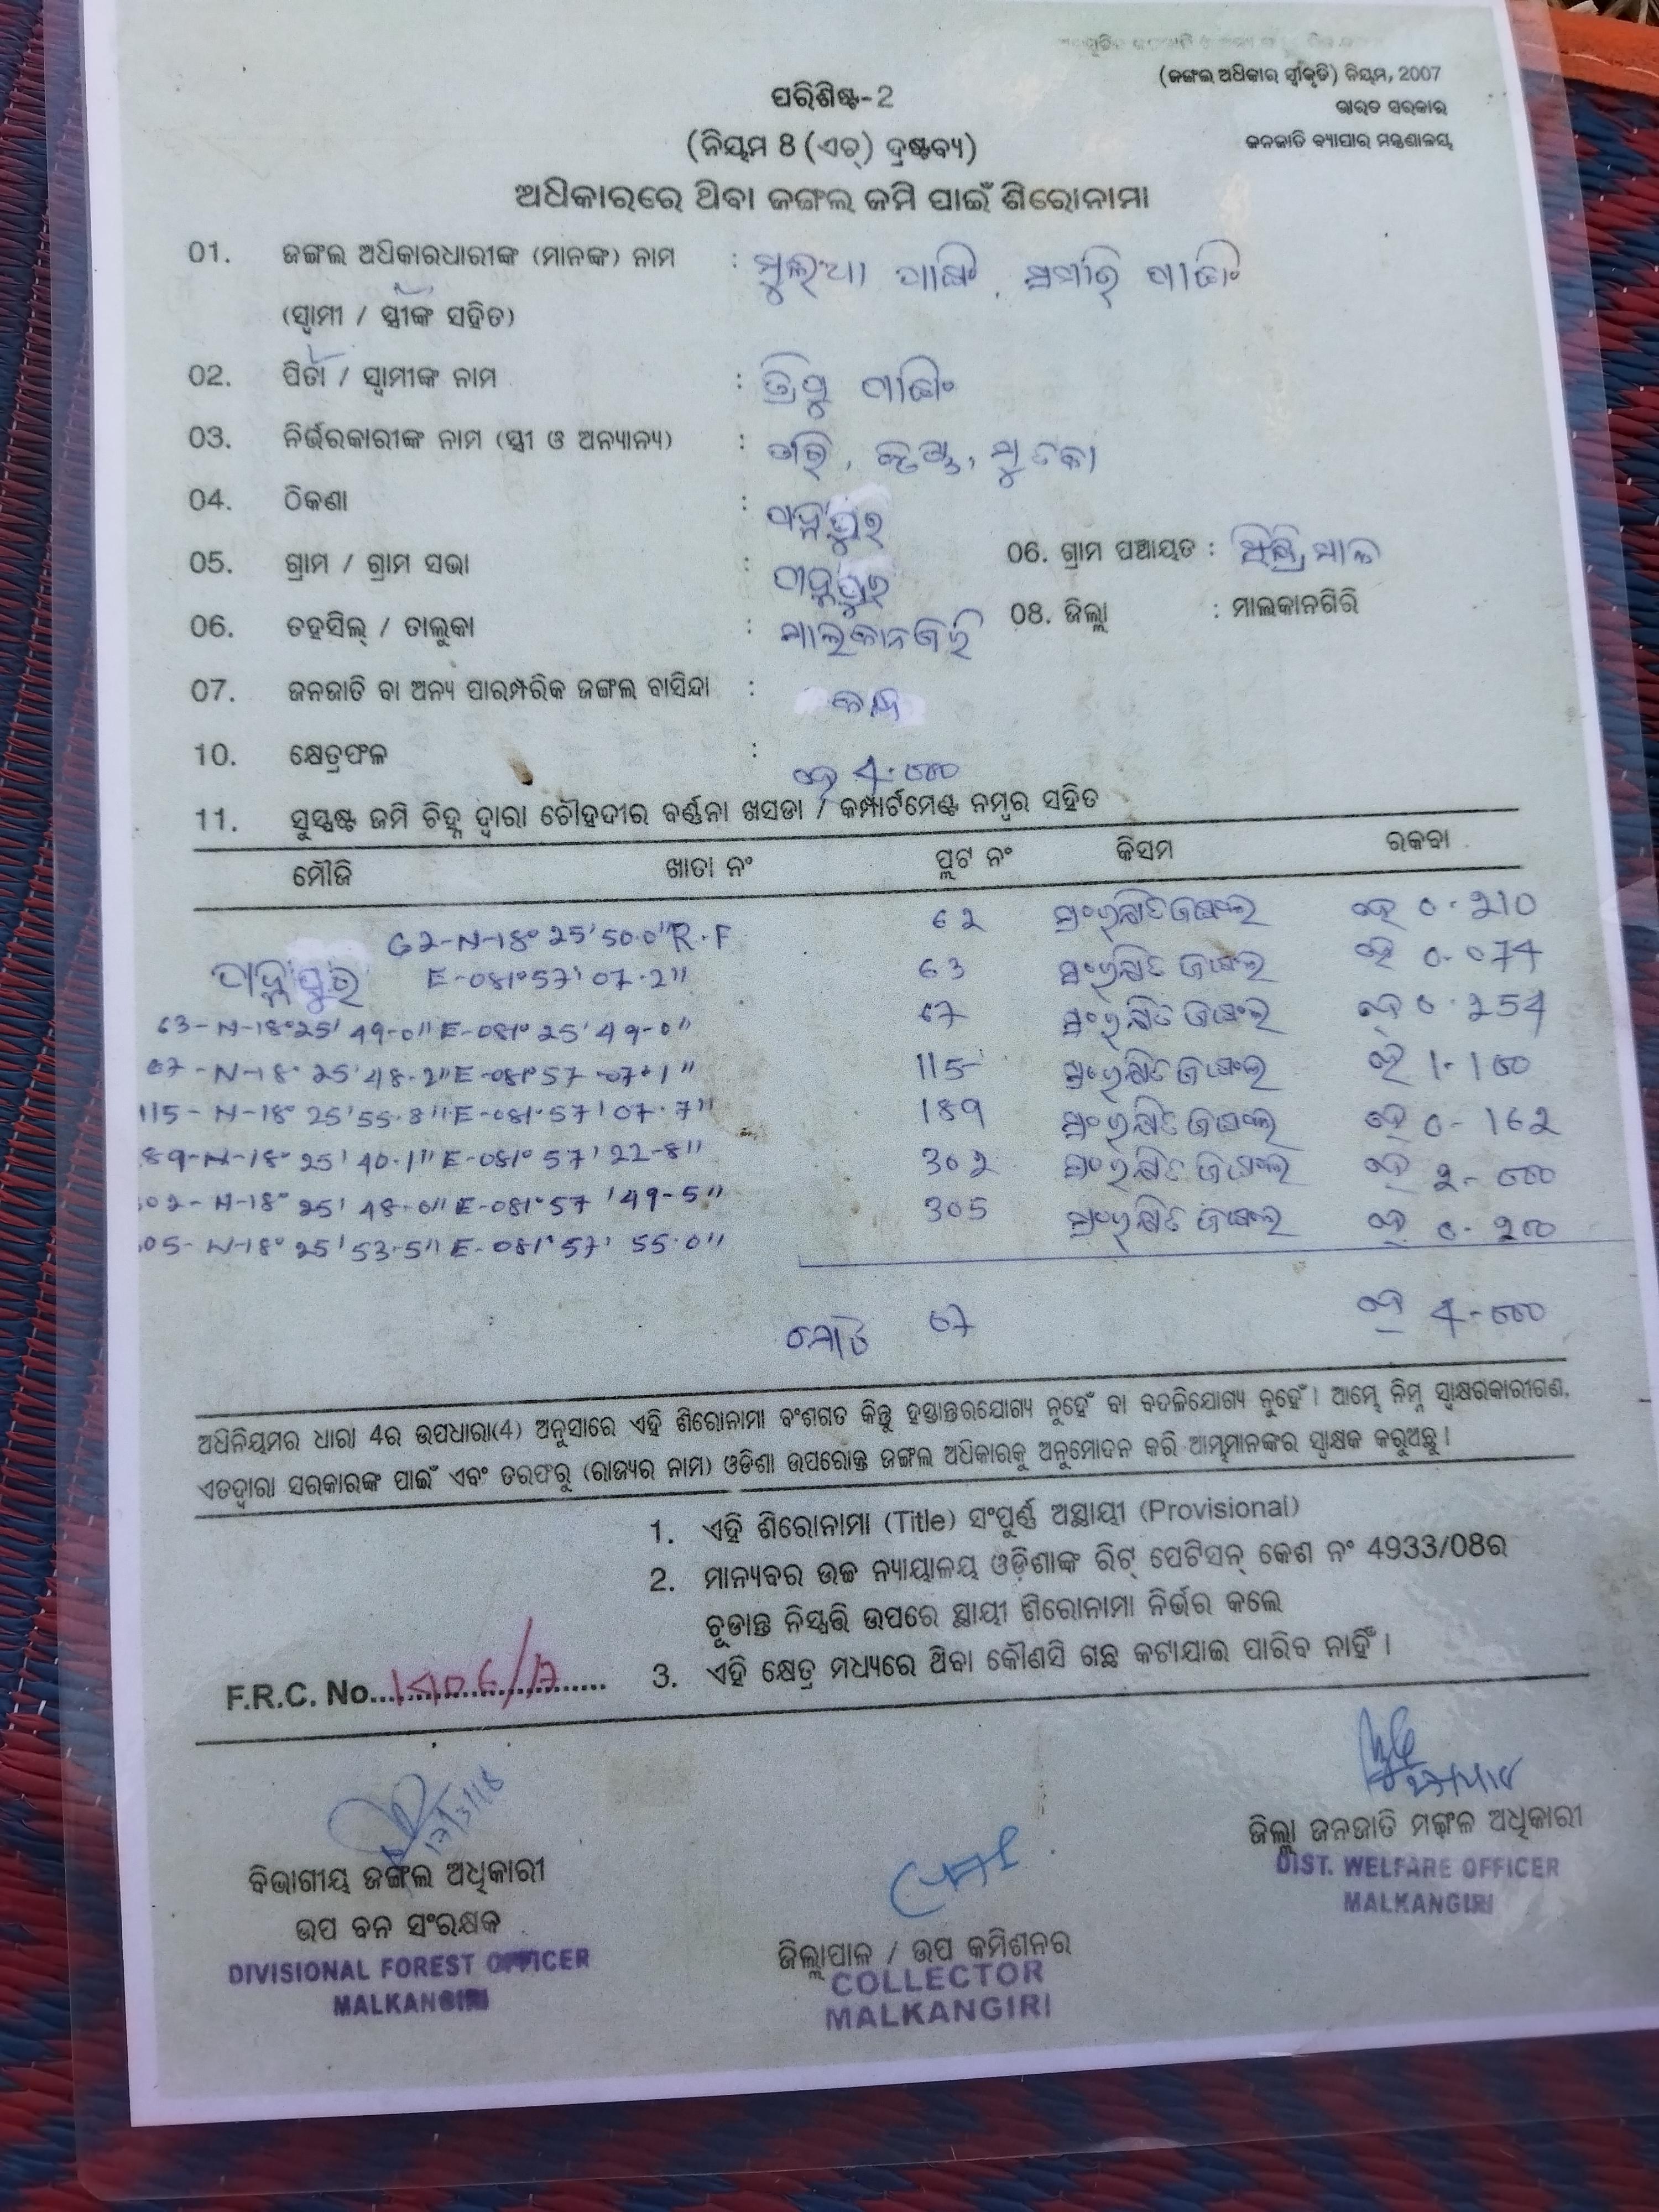 (ଜଙ୍ଗଲ ଅଧିକାର ସ୍ୱୀକୃତି) ନିୟମ, 2007
ଭାରତ ସରକାର
ଜନଜାତି ବ୍ୟାପାର ମନ୍ତ୍ରଣାଳୟ
ପରିଶିଷ୍ଟ-2
(ନିୟମ 8 (ଏଚ୍) ଦ୍ରଷ୍ଟବ୍ୟ)
ଅଧିକାରରେ ଥିବା ଜଙ୍ଗଲ ଜମି ପାଇଁ ଶିରୋନାମା
01. ଜଙ୍ଗଲ ଅଧିକାରଧାରୀଙ୍କ (ମାନଙ୍କ) ନାମ :
(ସ୍ୱାମୀ / ସ୍ତ୍ରୀଙ୍କ ସହିତ)
02. ପିତା / ସ୍ୱାମୀଙ୍କ ନାମ :
03. ନିର୍ଭରକାରୀଙ୍କ ନାମ (ସ୍ତ୍ରୀ ଓ ଅନ୍ୟାନ୍ୟ) :
04. ଠିକଣା :
05. ଗ୍ରାମ / ଗ୍ରାମ ସଭା : 06. ଗ୍ରାମ ପଞ୍ଚାୟତ :
06. ତହସିଲ୍ / ତାଲୁକା : ମାଲକାନଗିରି 08. ଜିଲ୍ଲା : ମାଲକାନଗିରି
07. ଜନଜାତି ବା ଅନ୍ୟ ପାରମ୍ପରିକ ଜଙ୍ଗଲ ବାସିନ୍ଦା :
10. କ୍ଷେତ୍ରଫଳ : ହେ 4.000
11. ସୁସ୍ପଷ୍ଟ ଜମି ଚିହ୍ନ ଦ୍ୱାରା ଚୌହଦୀର ବର୍ଣ୍ଣନା ଖସଡା / କମ୍ପାର୍ଟମେଣ୍ଟ ନମ୍ବର ସହିତ
ମୌଜି ଖାତା ନଂ ପ୍ଲଟ ନଂ କିସମ ରକବା
62-N-18° 25' 50.0" R.F 62 ସଂରକ୍ଷିତ ଜଙ୍ଗଲ ହେ 0.210
E-081°57' 07.2" 63 ସଂରକ୍ଷିତ ଜଙ୍ଗଲ ହେ 0.074
63-N-18°25' 49-0" E-081° 25' 49-0" 67 ସଂରକ୍ଷିତ ଜଙ୍ଗଲ ହେ 0.254
67-N-18° 25' 48-2" E-081°57-07.1" 115 ସଂରକ୍ଷିତ ଜଙ୍ଗଲ ହେ 1-100
115-N-18° 25' 55.8" E-081.57' 07.7" 189 ସଂରକ୍ଷିତ ଜଙ୍ଗଲ ହେ 0-162
89-N-18° 25' 40.1" E-081° 57' 22-8" 302 ସଂରକ୍ଷିତ ଜଙ୍ଗଲ ହେ 2-000
02-N-18° 25' 48-0" E-081°57' 49-5" 305 ସଂରକ୍ଷିତ ଜଙ୍ଗଲ ହେ 0-200
05-N-18° 25' 53-5" E-081°57' 55.0"
ମୋଟ 07 ହେ 4-000
ଅଧିନିୟମର ଧାରା 4ର ଉପଧାରା(4) ଅନୁସାରେ ଏହି ଶିରୋନାମା ବଂଶଗତ କିନ୍ତୁ ହସ୍ତାନ୍ତରଯୋଗ୍ୟ ନୁହେଁ ବା ବଦଳିଯୋଗ୍ୟ ନୁହେଁ । ଆମ୍ଭେ ନିମ୍ନ ସ୍ୱାକ୍ଷରକାରୀଗଣ,
ଏତଦ୍ୱାରା ସରକାରଙ୍କ ପାଇଁ ଏବଂ ତରଫରୁ (ରାଜ୍ୟର ନାମ) ଓଡିଶା ଉପରୋକ୍ତ ଜଙ୍ଗଲ ଅଧିକାରକୁ ଅନୁମୋଦନ କରି ଆମ୍ଭମାନଙ୍କର ସ୍ୱାକ୍ଷକ କରୁଅଛୁ ।
1. ଏହି ଶିରୋନାମା (Title) ସଂପୂର୍ଣ୍ଣ ଅସ୍ଥାୟୀ (Provisional)
2. ମାନ୍ୟବର ଉଚ୍ଚ ନ୍ୟାୟାଳୟ ଓଡ଼ିଶାଙ୍କ ରିଟ୍ ପେଟିସନ୍ କେଶ ନଂ 4933/08ର
ଚୂଡାନ୍ତ ନିସ୍ପତ୍ତି ଉପରେ ସ୍ଥାୟୀ ଶିରୋନାମା ନିର୍ଭର କଲେ
F.R.C. No. 3. ଏହି କ୍ଷେତ୍ର ମଧ୍ୟରେ ଥିବା କୌଣସି ଗଛ କଟାଯାଇ ପାରିବ ନାହିଁ ।
ଜିଲ୍ଲା ଜନଜାତି ମଙ୍ଗଳ ଅଧିକାରୀ
DIST. WELFARE OFFICER
MALKANGIRI
ବିଭାଗୀୟ ଜଙ୍ଗଲ ଅଧିକାରୀ
ଉପ ବନ ସଂରକ୍ଷକ
DIVISIONAL FOREST OFFICER
MALKANGIRI
ଜିଲ୍ଲାପାଳ / ଉପ କମିଶନର
COLLECTOR
MALKANGIRI